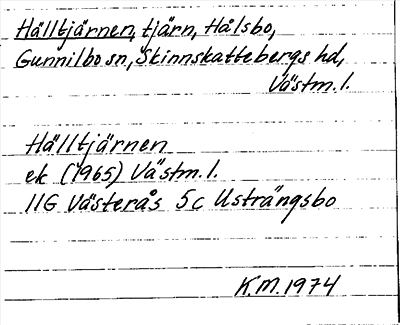 Hälltjärnen, tjärn, Hålsbo,
Gunnilbo sn, Skinnskattebergs hd,
Västm.l.
Hälltjärnen
ek (1965) Västm.l.
11G Västerås 5c Usträngsbo
K.M.1974